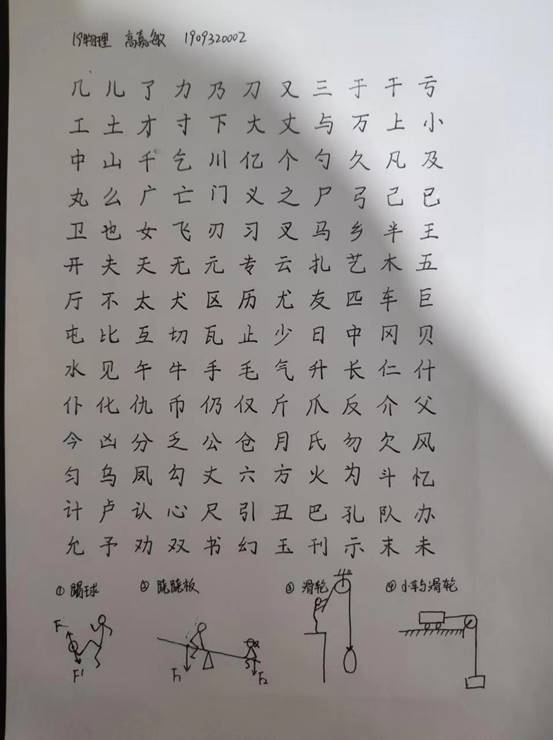 19物理 高嘉敏 1909320002
几 儿 了 力 乃 刀 又 三 于 干 亏
工 土 才 寸 下 大 丈 与 万 上 小
中 山 千 乞 川 亿 个 勺 久 凡 及
丸 么 广 亡 门 义 之 尸 弓 己 已
卫 也 女 飞 刃 习 叉 马 乡 半 王
开 夫 天 无 元 专 云 扎 艺 木 五
厅 不 太 犬 区 历 尤 友 匹 车 巨
屯 比 互 切 瓦 止 少 日 中 冈 贝
水 见 午 牛 手 毛 气 升 长 仁 什
仆 化 仇 币 仍 仅 斤 爪 反 介 父
今 凶 分 乏 公 仓 月 氏 勿 欠 风
匀 乌 凤 勾 丈 六 方 火 为 斗 忆
计 卢 认 心 尺 引 丑 巴 孔 队 办
允 予 劝 双 书 幻 玉 刊 示 末 未
① 踢球 ② 跷跷板 ③ 滑轮 ④ 小车与滑轮
F F' F₁ F₂